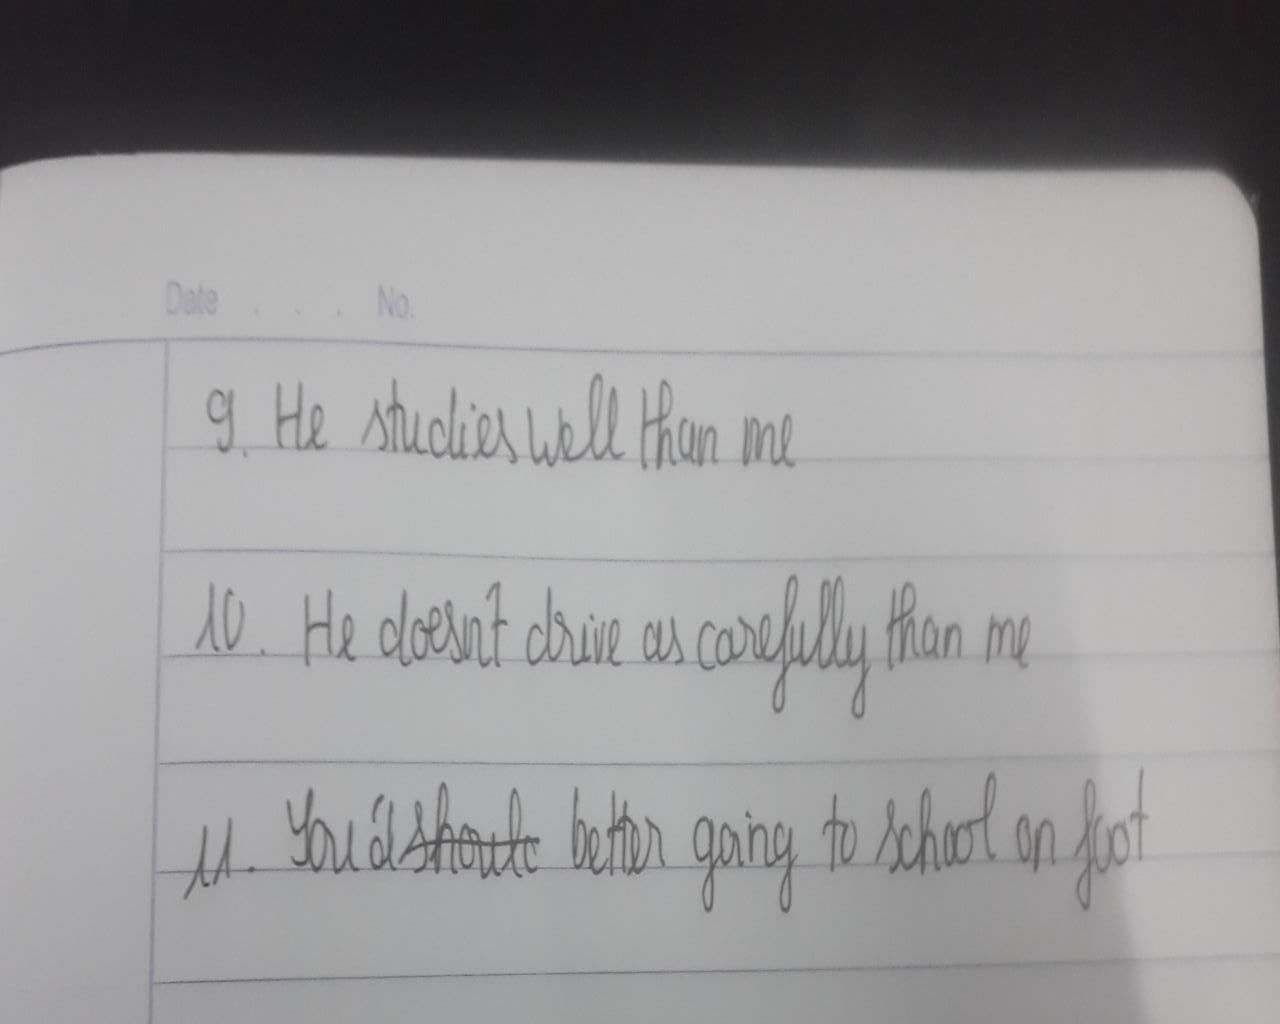 Date . . . No.
9. He studies well than me
10. He doesn't drive as carefully than me
11. You'd better going to school on foot